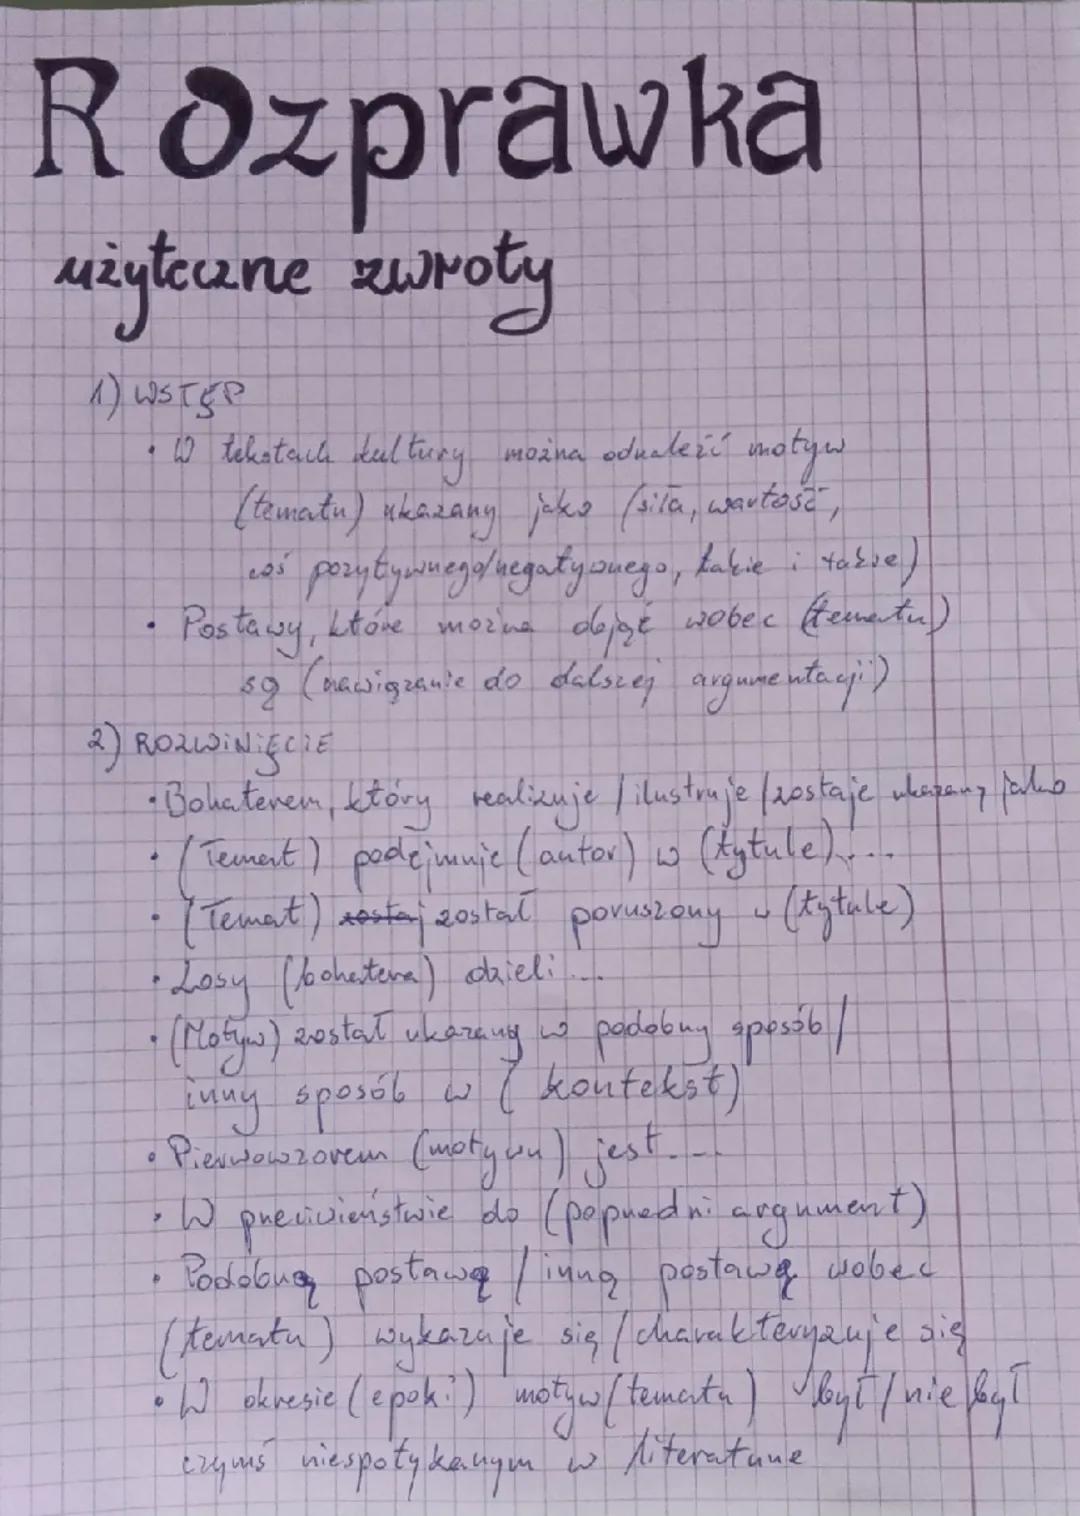 Rozprawka
użyteczne zwroty
1) WSTĘP
• W tekstach kultury można odnaleźć motyw
(tematu) ukazany jako (siła, wartość,
coś pozytywnego/negatywnego, takie i takie)
• Postawy, które można objąć wobec (tematu)
są (nawiązanie do dalszej argumentacji)
2) ROZWINIĘCIE
• Bohaterem, który realizuje / ilustruje / zostaje ukazany jako
• (Temat) podejmuje (autor) w (tytule)....
• (Temat) zostaj został poruszony w (tytule)
• Losy (bohatera) dzieli...
• (Motyw) został ukazany w podobny sposób /
inny sposób w (kontekst)
• Pierwowzorem (motywu) jest....
• W przeciwieństwie do (poprzedni argument)
• Podobną postawą / inną postawą wobec
(tematu) wykazuje się / charakteryzuje się
• W okresie (epoki) motyw (tematu) był / nie był
czymś niespotykanym w literaturze